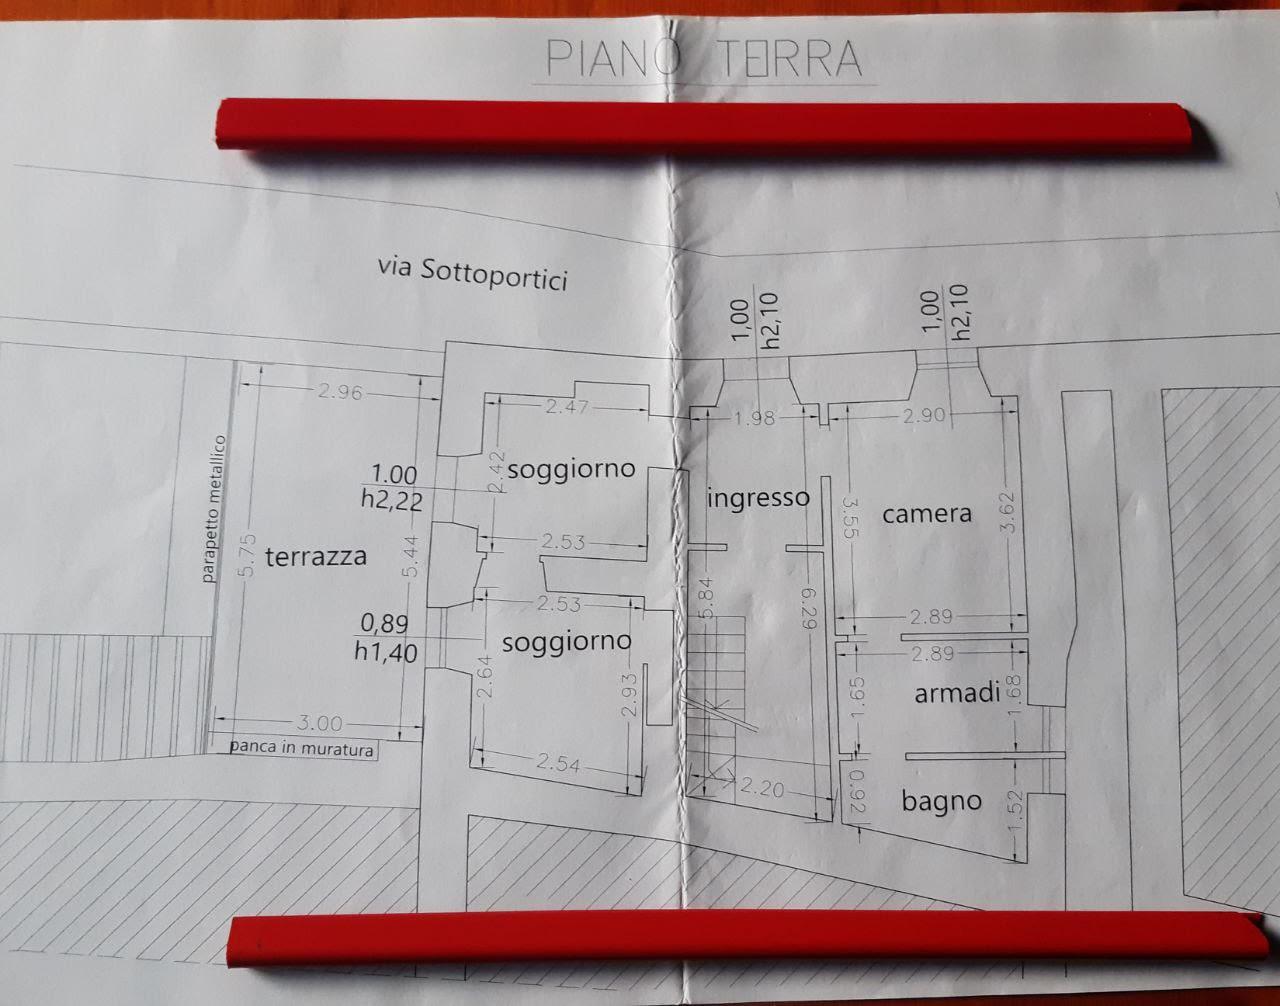 PIANO TERRA
via Sottoportici
1,00
h2,10
1,00
h2,10
2.96
2.47
1.98
2.90
parapetto metallico
5.75
terrazza
5.44
1.00
h2,22
2.42
soggiorno
2.53
ingresso
3.55
camera
3.62
0,89
h1,40
2.53
soggiorno
2.64
2.93
5.84
6.29
2.89
2.89
1.65
armadi
1.68
3.00
panca in muratura
2.54
2.20
0.92
bagno
1.52